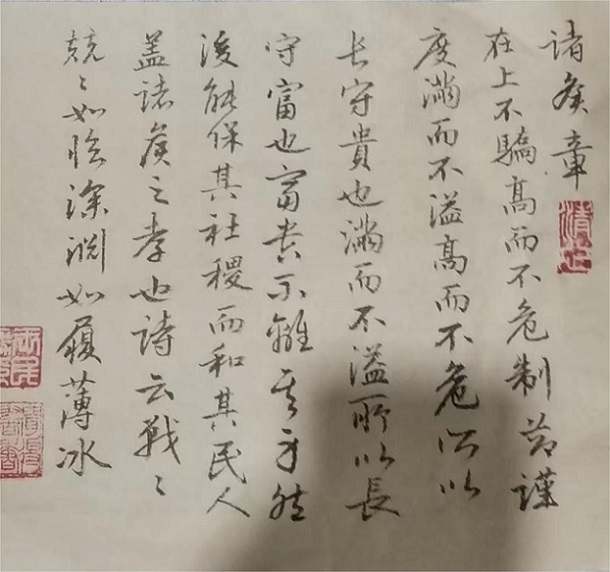 諸矦章
在上不驕髙而不危制莭謹
度滿而不溢髙而不危所以
长守貴也滿而不溢所以長
守富也富貴不離其身然
後能保其社稷而和其民人
盖諸矦之孝也詩云戰〻
兢〻如臨深淵如履薄冰